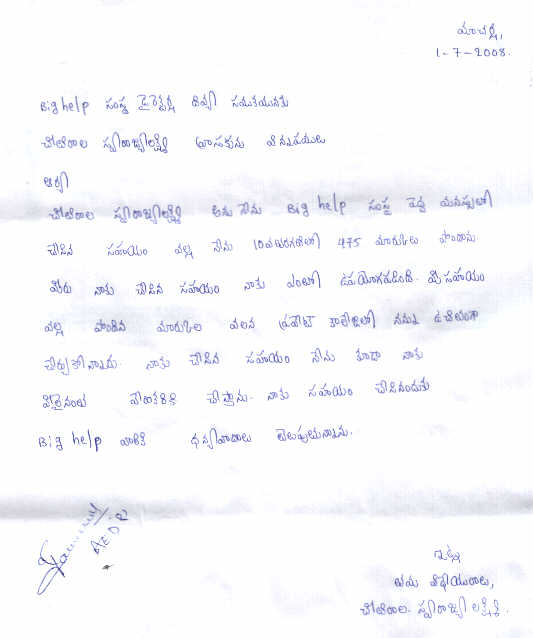 మాచర్ల,
1-7-2008.
Big help సంస్థ డైరెక్టర్ దివ్య సముఖమునకు
చోటిరాల స్వరాజ్యలక్ష్మి వ్రాసుకున్న విన్నపములు
ఆర్యా
చోటిరాల స్వరాజ్యలక్ష్మి అను నేను Big help సంస్థ పెద్ద మనస్సుతో
చేసిన సహాయం వల్ల నేను 10వతరగతిలో 475 మార్కులు పొందాను
మీరు నాకు చేసిన సహాయం నాకు ఎంతో ఉపయోగపడింది. మీ సహాయం
వల్ల పొందిన మార్కుల వలన ప్రైవేట్ కాలేజిలో నన్ను ఉచితంగా
చేర్చుకొన్నారు. నాకు చేసిన సహాయం నేను కూడా నాకు
వీలైనంత వారికి చేస్తాను. నాకు సహాయం చేసినందుకు
Big help వారికి ధన్యవాదాలు తెలుపుతున్నాను.
ఇట్లు
తమ విధేయురాలు,
చోటిరాల. స్వరాజ్య లక్ష్మి.